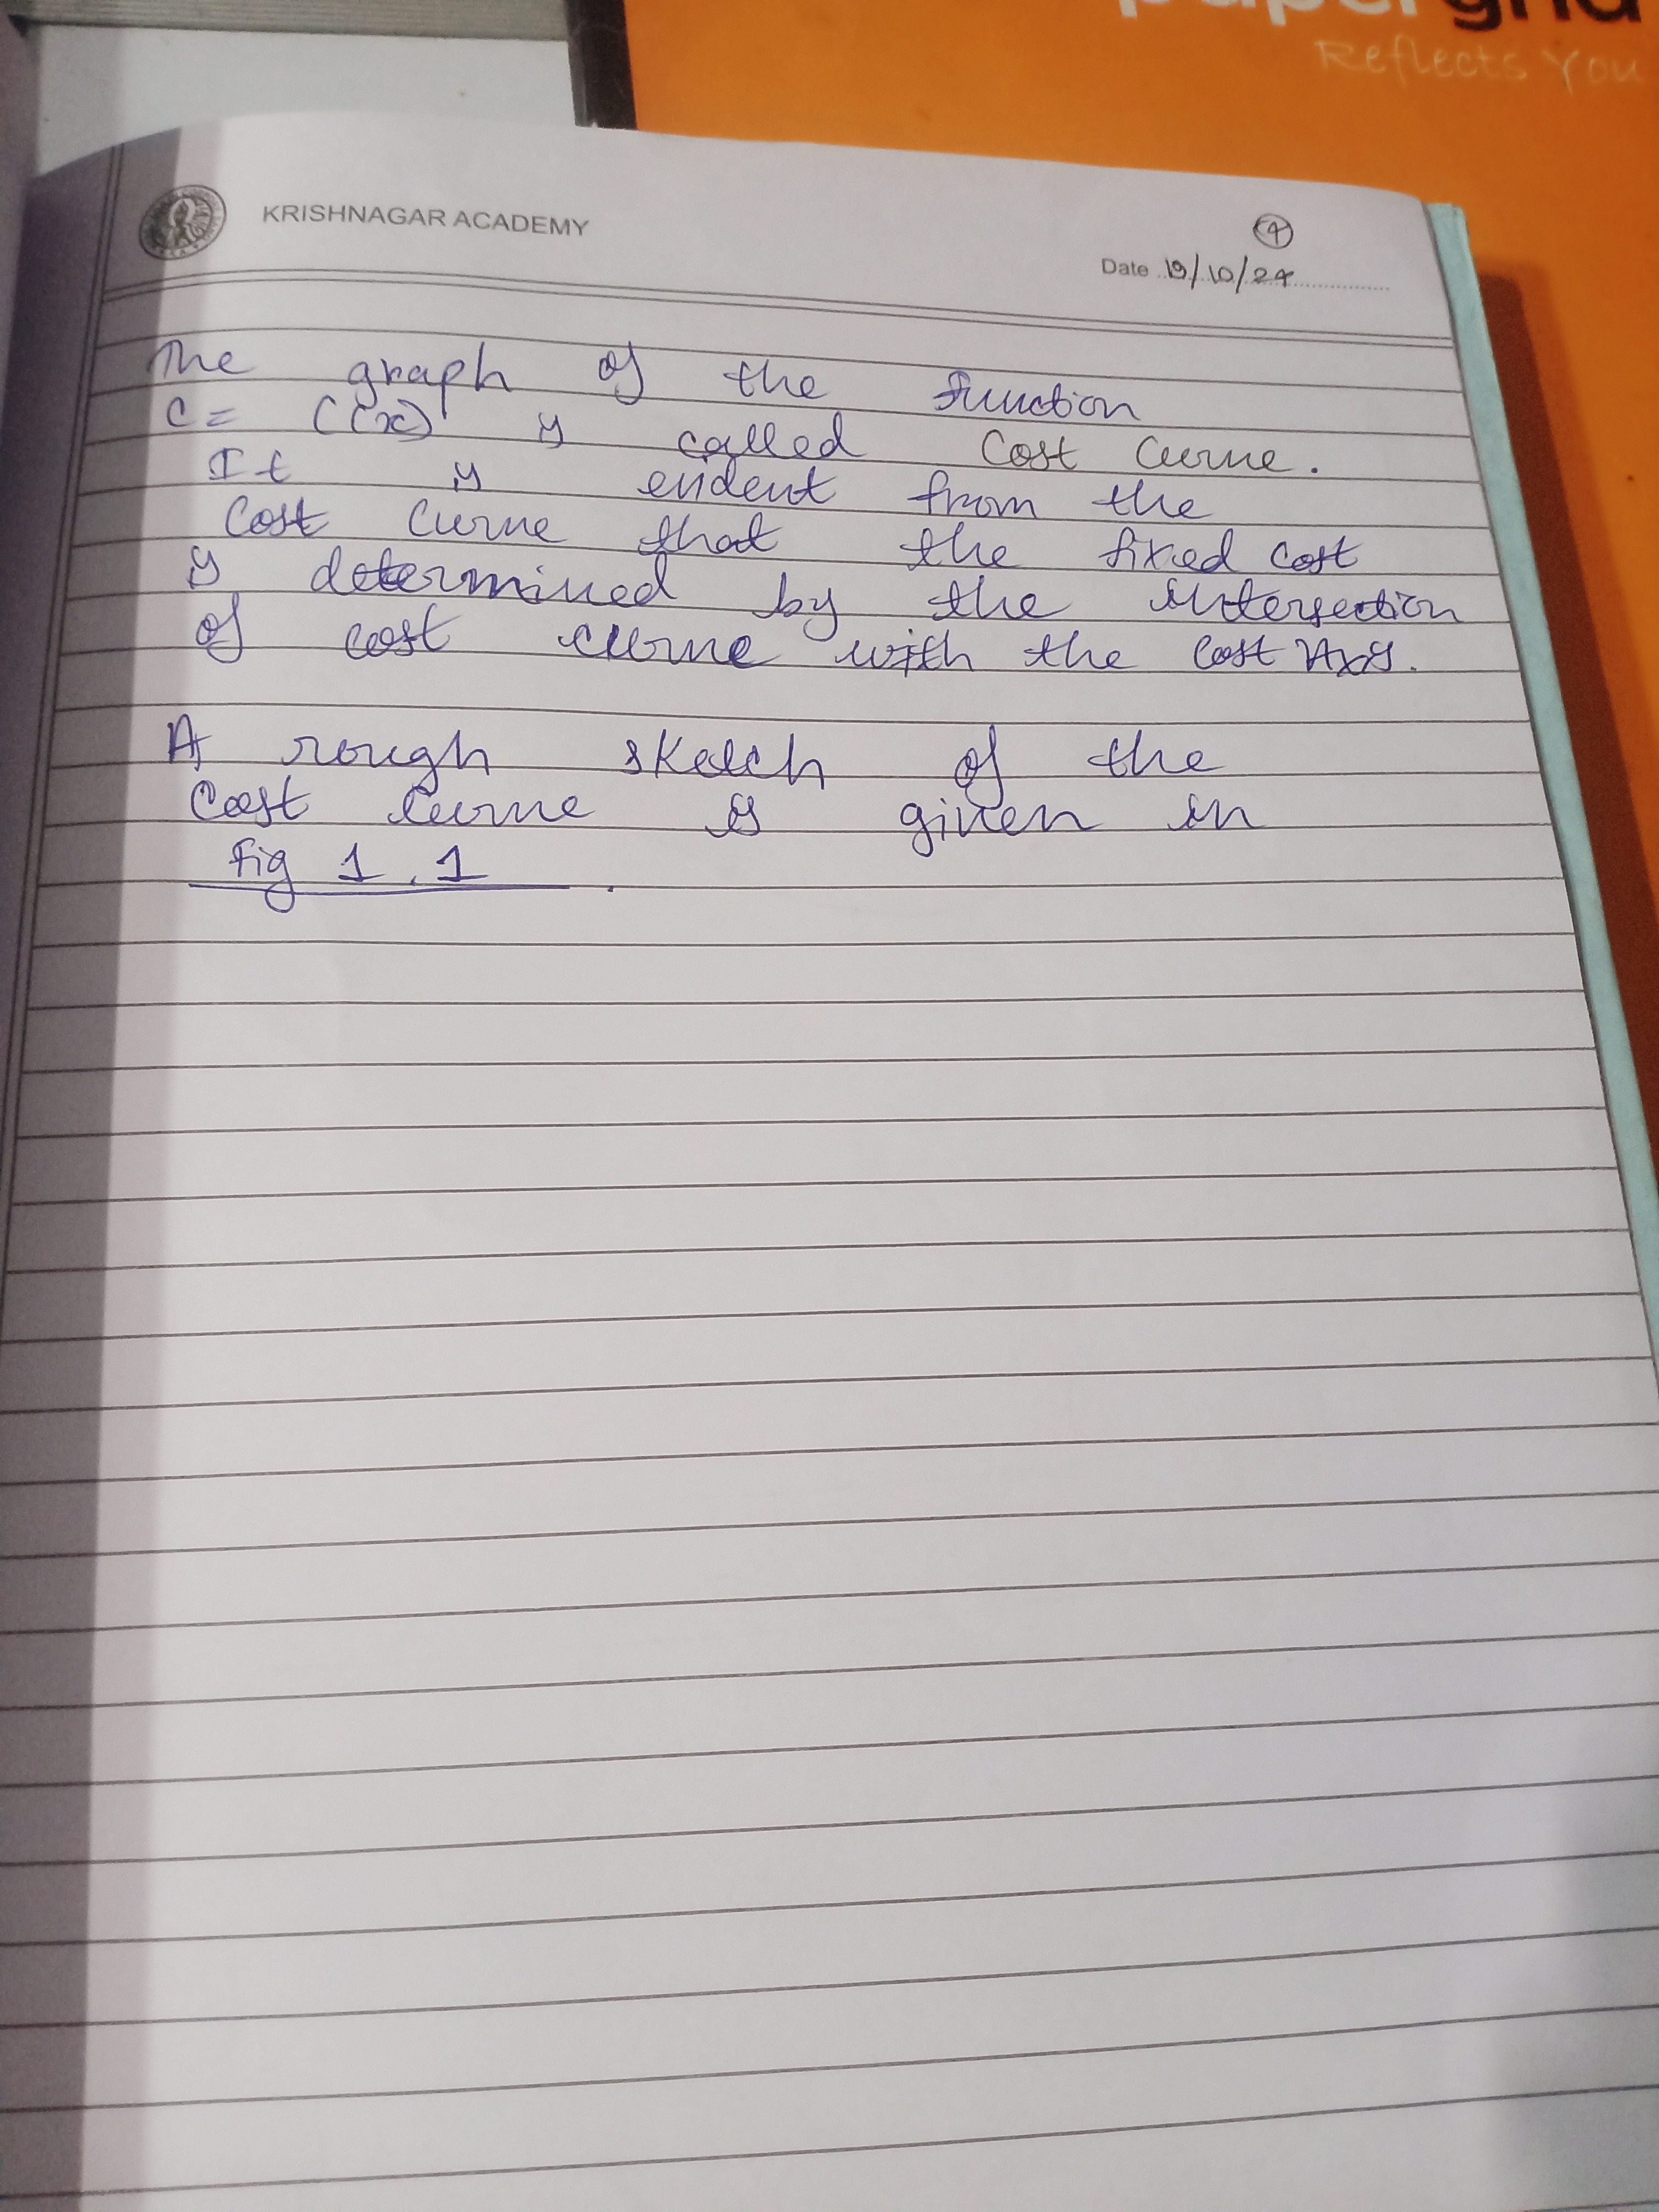 papergrid
Reflects You
KRISHNAGAR ACADEMY
4
Date 19/10/24
The graph of the function
C = C(x) is called Cost Curve.
It is evident from the
Cost Curve that the fixed cost
is determined by the intersection
of cost curve with the Cost Axis.
A rough sketch of the
Cost Curve is given in
Fig 1.1.